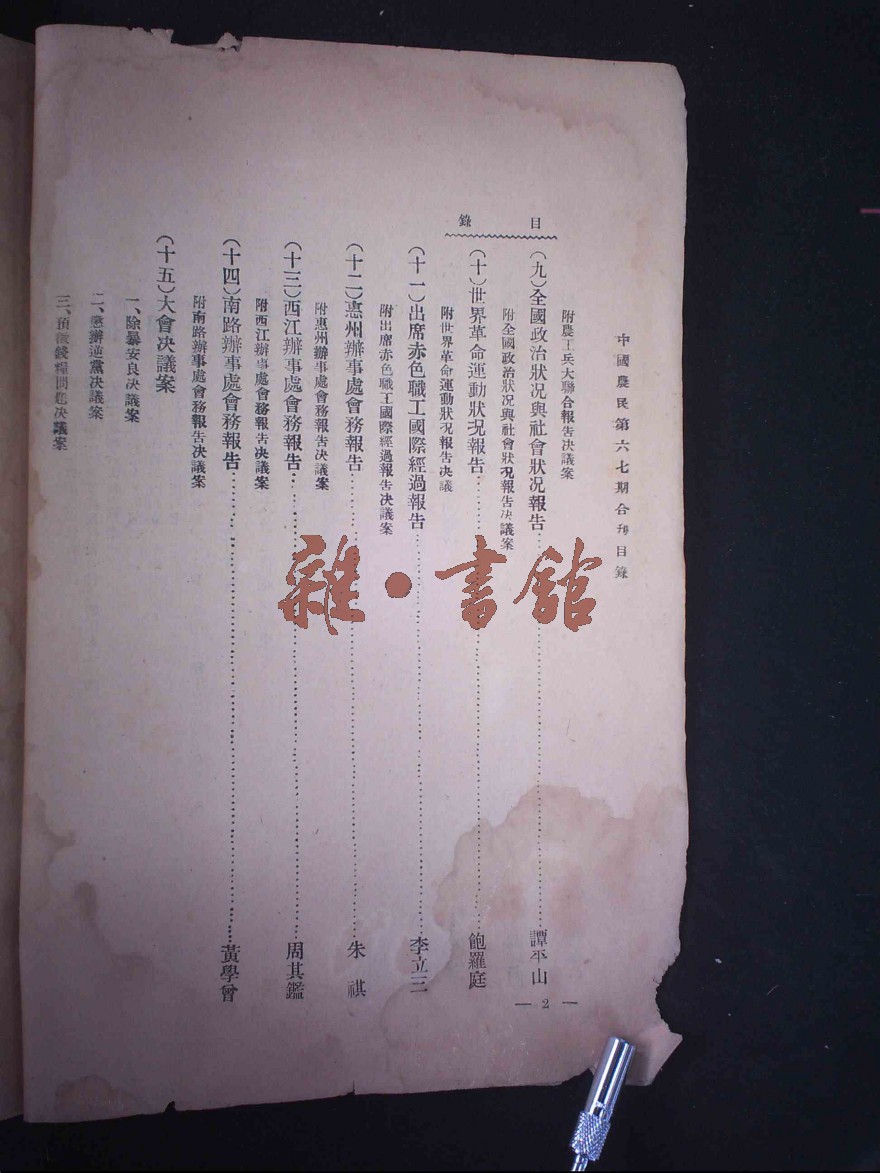 中國農民第六七期合刋目錄
目錄
附農工兵大聯合報告决議案
(九)全國政治狀况與社會狀况報告…………譚平山
附全國政治狀况與社會狀况報告决議案
(十)世界革命運動狀況報告…………鮑羅庭
附世界革命運動狀況報告决議
(十一)出席赤色職工國際經過報告…………李立三
附出席赤色職工國際經過報告决議案
(十二)惠州辦事處會務報告…………朱祺
附惠州辦事處會務報告决議案
(十三)西江辦事處會務報告…………周其鑑
附西江辦事處會務報告决議案
(十四)南路辦事處會務報告…………黃學曾
附南路辦事處會務報告决議案
(十五)大會决議案
一、除暴安良决議案
二、懲辦逆黨决議案
三、預徵錢糧問題决議案
— 2 —
雜·書館